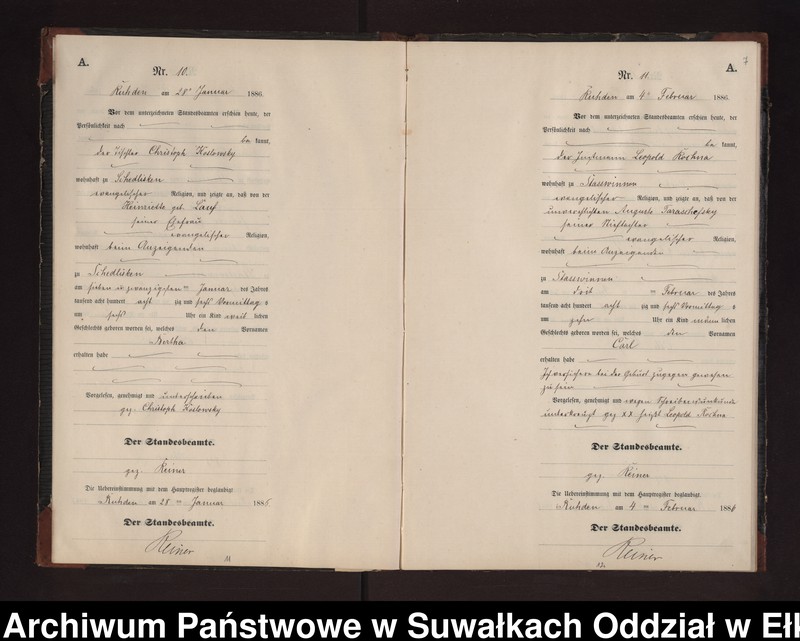 A.
Nr. 10.
Ruhden am 28ⁿ Januar 1886.
Vor dem unterzeichneten Standesbeamten erschien heute, der
Persönlichkeit nach
be kannt,
der Christoph Koslowsky
wohnhaft zu Schedlisken
evangelischer Religion, und zeigte an, daß von der
Heinriette geb.
seiner Ehefrau
evangelischer Religion,
wohnhaft beim Anzeigenden
zu Schedlisken
am sieben u zwanzigsten ten Januar des Jahres
tausend acht hundert acht zig und sechs Vormittag s
um sechs Uhr ein Kind weib lichen
Geschlechts geboren worden sei, welches den Vornamen
Bertha
erhalten habe
Vorgelesen, genehmigt und unterschrieben
gez. Christoph Koslowsky
Der Standesbeamte.
gez. Reiner
Die Uebereinstimmung mit dem Hauptregister beglaubigt
Ruhden am 28 ten Januar 1886
Der Standesbeamte.
Reiner
11
7
A.
Nr. 11.
Ruhden am 4ⁿ Februar 1886.
Vor dem unterzeichneten Standesbeamten erschien heute, der
Persönlichkeit nach
be kannt,
der Leopold Kostna
wohnhaft zu Stasswinnen
evangelischer Religion, und zeigte an, daß von der
unverehelichten Auguste
seiner Stieftochter
evangelischer Religion,
wohnhaft beim Anzeigenden
zu Stasswinnen
am drit ten Februar des Jahres
tausend acht hundert acht zig und sechs Vormittag s
um zehn Uhr ein Kind männ lichen
Geschlechts geboren worden sei, welches den Vornamen
Carl
erhalten habe
Ich versichere bei der Geburt zugegen gewesen
zu sein
Vorgelesen, genehmigt und wegen Schreibensunkunde
unterkreuzt gez xx heißt Leopold Kostna
Der Standesbeamte.
gez. Reiner
Die Uebereinstimmung mit dem Hauptregister beglaubigt
Ruhden am 4 ten Februar 1886
Der Standesbeamte.
Reiner
12
Archiwum Państwowe w Suwałkach Oddział w Ełk